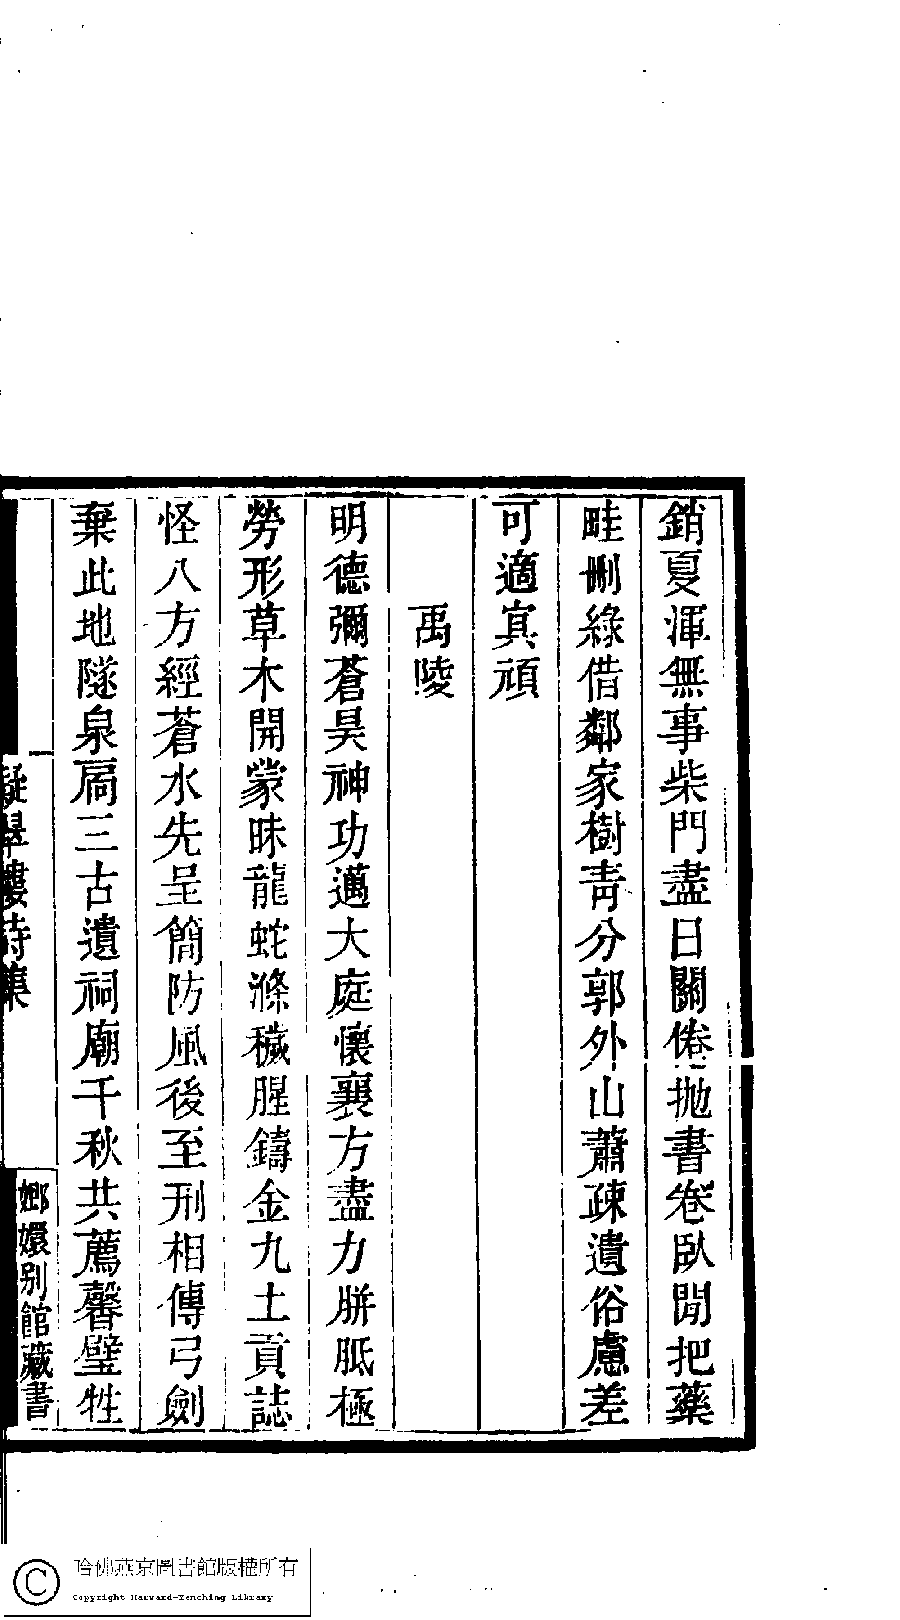 銷夏渾無事柴門盡日關倦拋書卷臥閒把藥
畦刪綠借鄰家樹青分郭外山蕭疎遺俗慮差
可適寘頑
禹陵
明德彌蒼昊神功邁大庭懷襄方盡力胼胝極
勞形草木開蒙昧龍蛇滌穢腥鑄金九土貢誌
怪八方經蒼水先呈簡防風後至刑相傳弓劍
棄此地隧泉扃三古遺祠廟千秋共薦馨璧牲
凝翠樓詩集
一
嫏嬛別館藏書
哈佛燕京圖書館版權所有
Copyright Harvard-Yenching Library